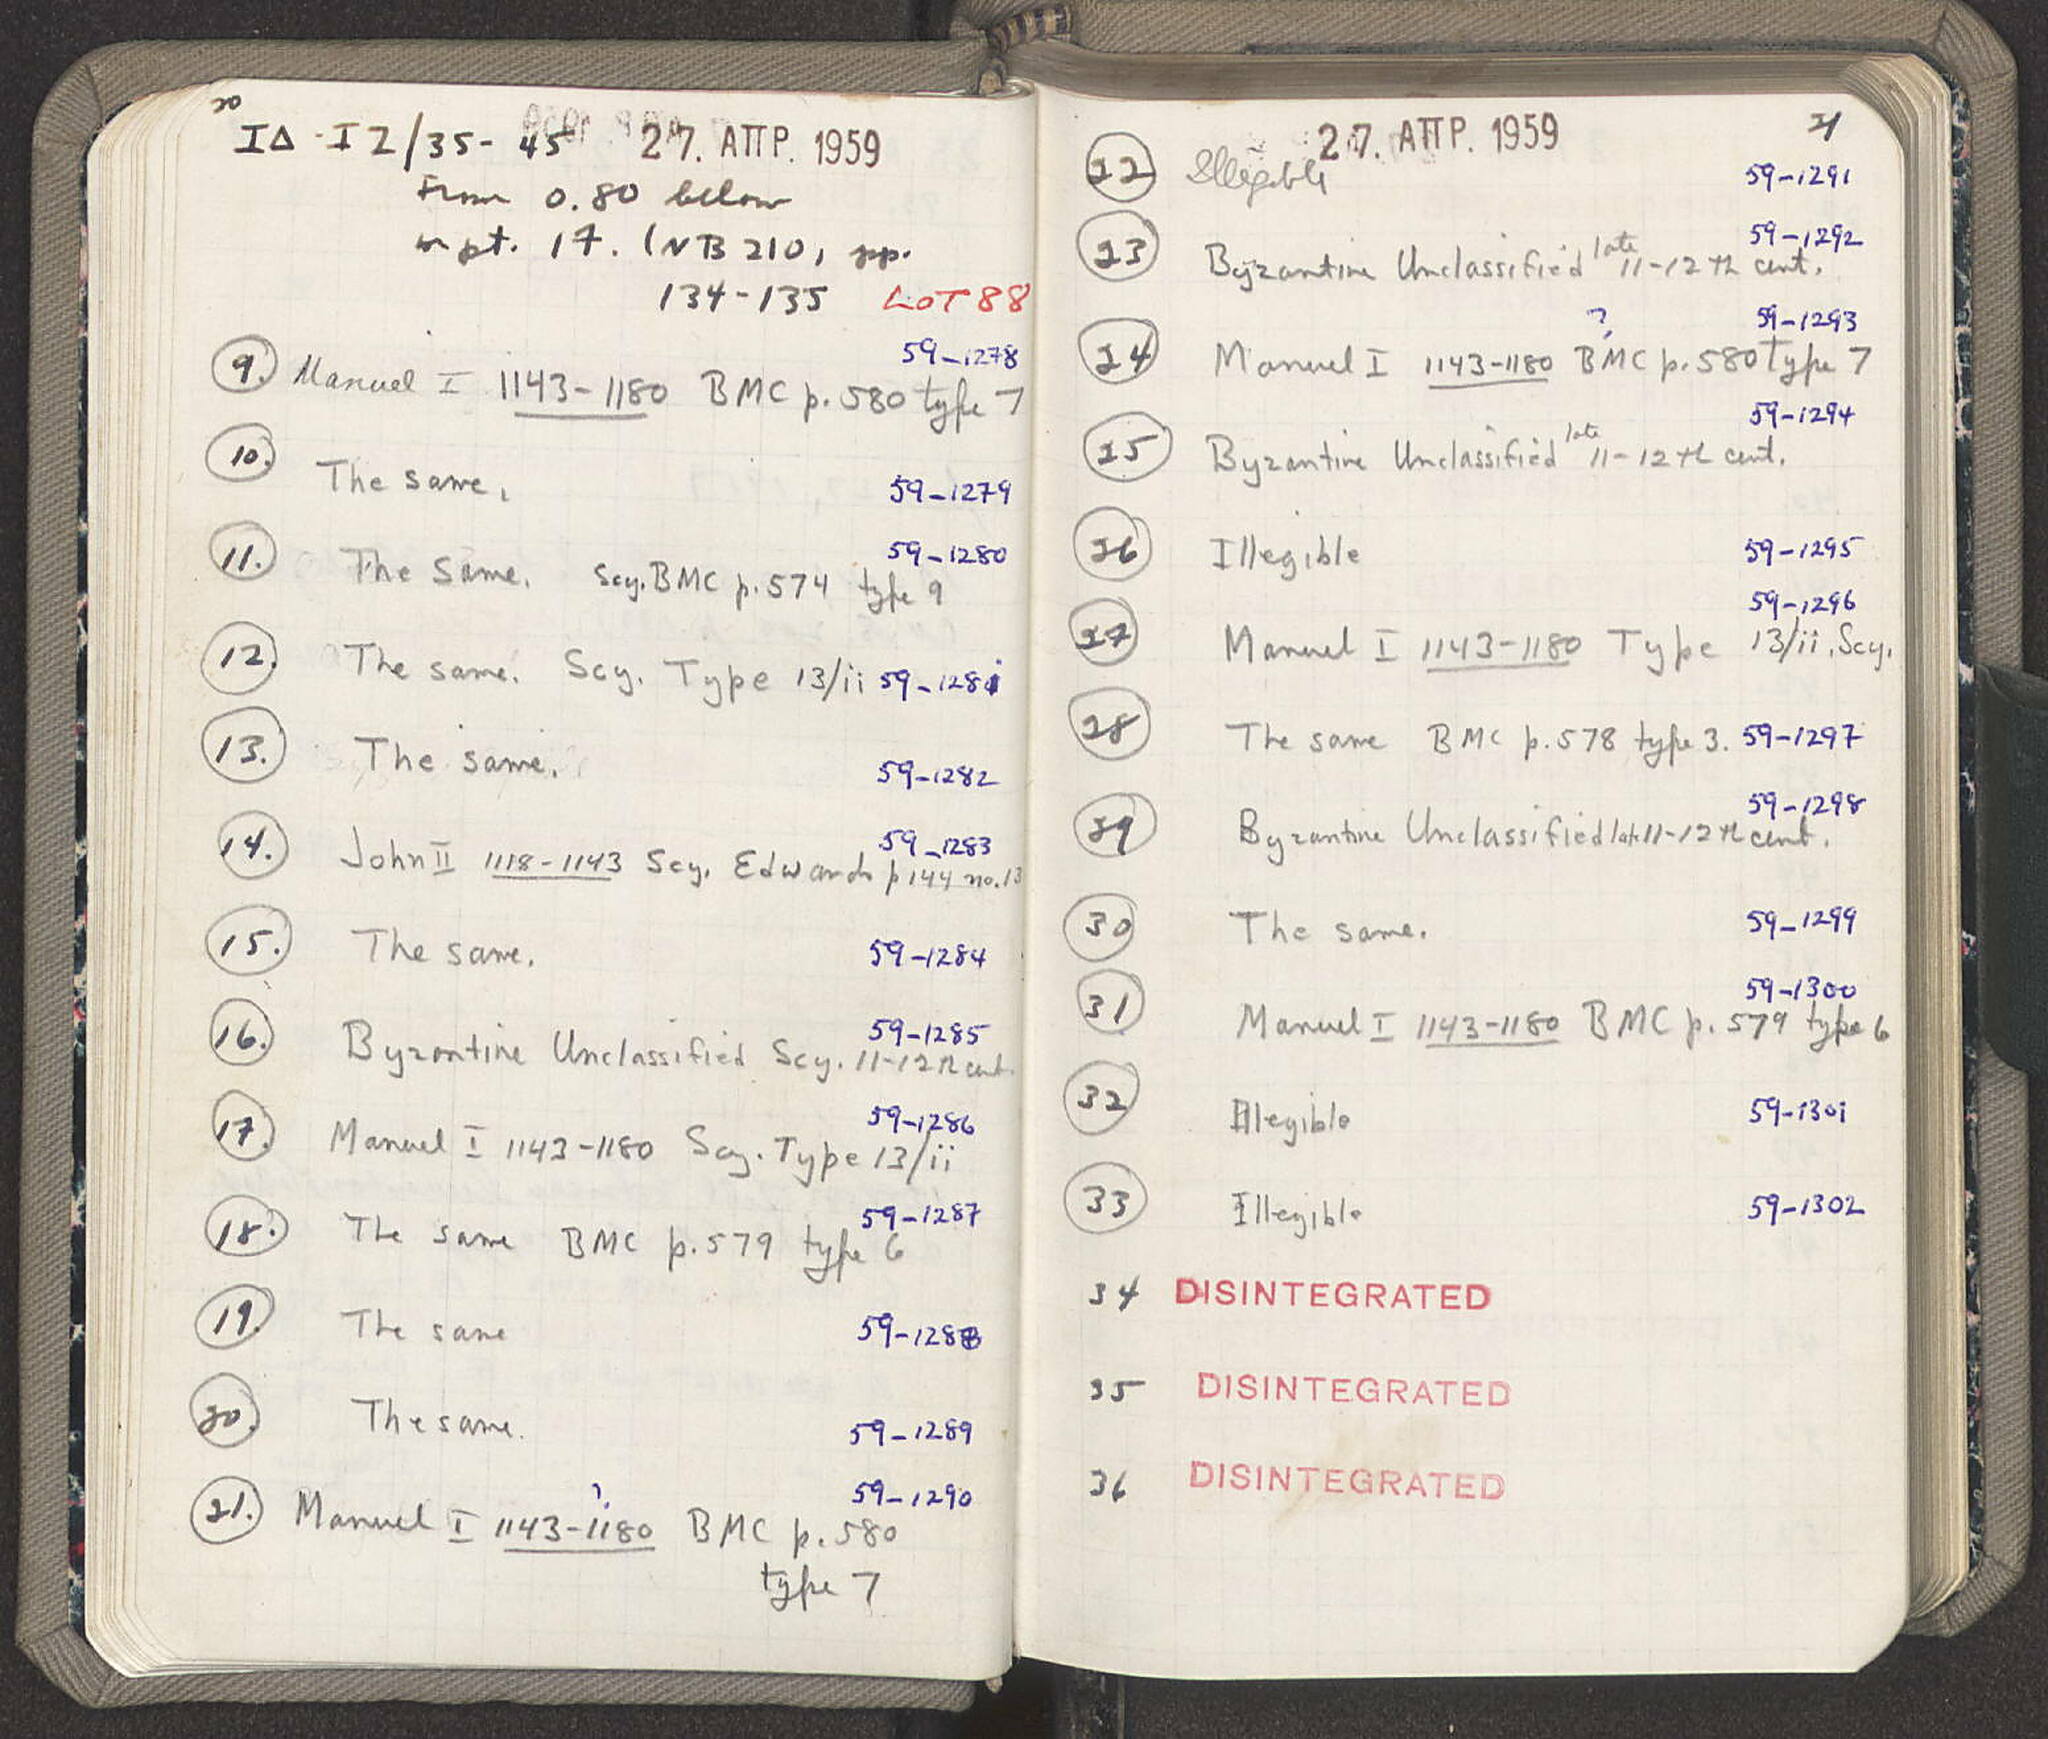 20
ΙΔ-ΙΖ/35-45 27. ΑΠΡ. 1959
From 0.80 below
w pt. 17. (NB 210, pp.
134-135 LOT 88
59-1278
9. Manuel I 1143-1180 BMC p. 580 type 7
10. The same. 59-1279
59-1280
11. The same. Scy. BMC p. 574 type 9
12. The same. Scy. Type 13/ii 59-1281
13. The same. 59-1282
59-1283
14. John II 1118-1143 Scy. Edwards p 144 no. 13
15. The same. 59-1284
59-1285
16. Byzantine Unclassified Scy. 11-12th cent.
59-1286
17. Manuel I 1143-1180 Scy. Type 13/ii
59-1287
18. The same BMC p. 579 type 6
19. The same 59-1288
20. The same. 59-1289
? 59-1290
21. Manuel I 1143-1180 BMC p. 580
type 7
27. ΑΠΡ. 1959 21
22 Illegible 59-1291
59-1292
23 Byzantine Unclassified late 11-12th cent.
? 59-1293
24 Manuel I 1143-1180 BMC p. 580 type 7
59-1294
25 Byzantine Unclassified late 11-12th cent.
26 Illegible 59-1295
59-1296
27 Manuel I 1143-1180 Type 13/ii. Scy.
28 The same BMC p. 578 type 3. 59-1297
59-1298
29 Byzantine Unclassified late 11-12th cent.
30 The same. 59-1299
59-1300
31 Manuel I 1143-1180 BMC p. 579 type 6
32 Illegible 59-1301
33 Illegible 59-1302
34 DISINTEGRATED
35 DISINTEGRATED
36 DISINTEGRATED